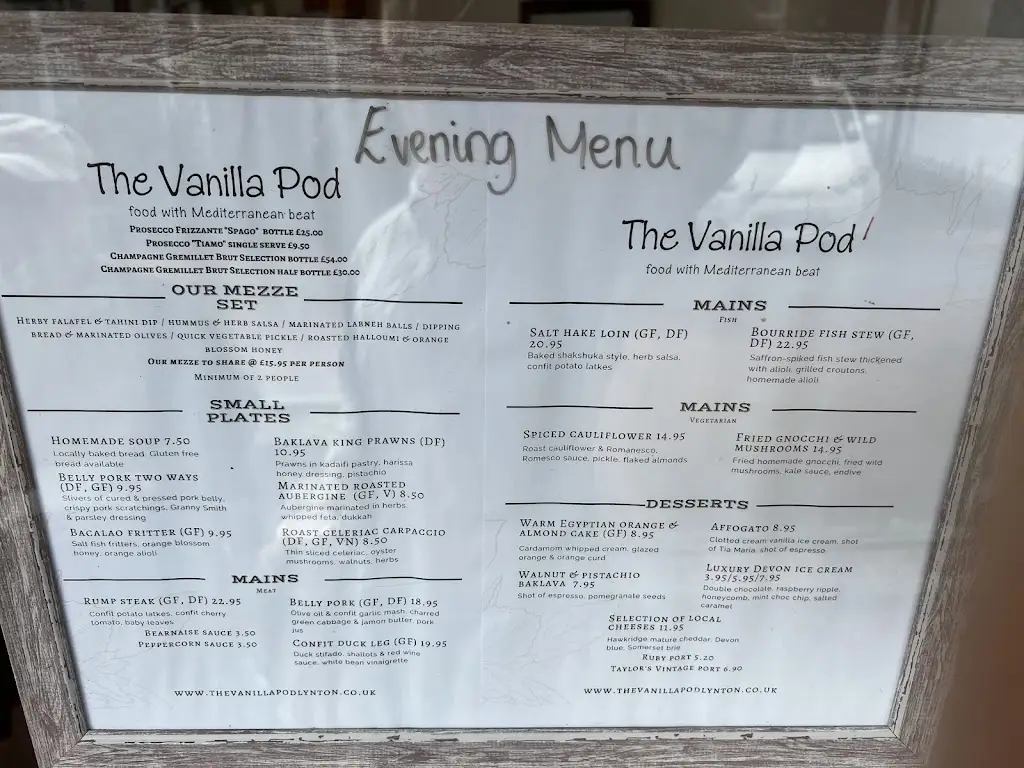 Evening Menu
The Vanilla Pod
food with Mediterranean beat
PROSECCO FRIZZANTE "SPAGO" BOTTLE £25.00
PROSECCO "TIAMO" SINGLE SERVE £9.50
CHAMPAGNE GREMILLET BRUT SELECTION BOTTLE £54.00
CHAMPAGNE GREMILLET BRUT SELECTION HALF BOTTLE £30.00
OUR MEZZE
SET
HERBY FALAFEL & TAHINI DIP / HUMMUS & HERB SALSA / MARINATED LABNEH BALLS / DIPPING
BREAD & MARINATED OLIVES / QUICK VEGETABLE PICKLE / ROASTED HALLOUMI & ORANGE
BLOSSOM HONEY
OUR MEZZE TO SHARE @ £15.95 PER PERSON
MINIMUM OF 2 PEOPLE
SMALL
PLATES
HOMEMADE SOUP 7.50
Locally baked bread. Gluten free
bread available
BELLY PORK TWO WAYS
(DF, GF) 9.95
Slivers of cured & pressed pork belly,
crispy pork scratchings, Granny Smith
& parsley dressing
BACALAO FRITTER (GF) 9.95
Salt fish fritters, orange blossom
honey, orange alioli
BAKLAVA KING PRAWNS (DF)
10.95
Prawns in kadaifi pastry, harissa
honey dressing, pistachio
MARINATED ROASTED
AUBERGINE (GF, V) 8.50
Aubergine marinated in herbs,
whipped feta, dukkah
ROAST CELERIAC CARPACCIO
(DF, GF, VN) 8.50
Thin sliced celeriac, oyster
mushrooms, walnuts, herbs
MAINS
MEAT
RUMP STEAK (GF, DF) 22.95
Confit potato latkes, confit cherry
tomato, baby leaves
BEARNAISE SAUCE 3.50
PEPPERCORN SAUCE 3.50
BELLY PORK (GF, DF) 18.95
Olive oil & confit garlic mash, charred
green cabbage & jamon butter, pork
jus
CONFIT DUCK LEG (GF) 19.95
Duck stifado, shallots & red wine
sauce, white bean vinaigrette
WWW.THEVANILLAPODLYNTON.CO.UK
The Vanilla Pod
food with Mediterranean beat
MAINS
FISH
SALT HAKE LOIN (GF, DF)
20.95
Baked shakshuka style, herb salsa,
confit potato latkes
BOURRIDE FISH STEW (GF,
DF) 22.95
Saffron-spiked fish stew thickened
with alioli, grilled croutons,
homemade alioli
MAINS
VEGETARIAN
SPICED CAULIFLOWER 14.95
Roast cauliflower & Romanesco,
Romesco sauce, pickle, flaked almonds
FRIED GNOCCHI & WILD
MUSHROOMS 14.95
Fried homemade gnocchi, fried wild
mushrooms, kale sauce, endive
DESSERTS
WARM EGYPTIAN ORANGE &
ALMOND CAKE (GF) 8.95
Cardamom whipped cream, glazed
orange & orange curd
WALNUT & PISTACHIO
BAKLAVA 7.95
Shot of espresso, pomegranate seeds
AFFOGATO 8.95
Clotted cream vanilla ice cream, shot
of Tia Maria, shot of espresso
LUXURY DEVON ICE CREAM
3.95/5.95/7.95
Double chocolate, raspberry ripple,
honeycomb, mint choc chip, salted
caramel
SELECTION OF LOCAL
CHEESES 11.95
Hawkridge mature cheddar, Devon
blue, Somerset brie
RUBY PORT 5.20
TAYLOR'S VINTAGE PORT 6.90
WWW.THEVANILLAPODLYNTON.CO.UK